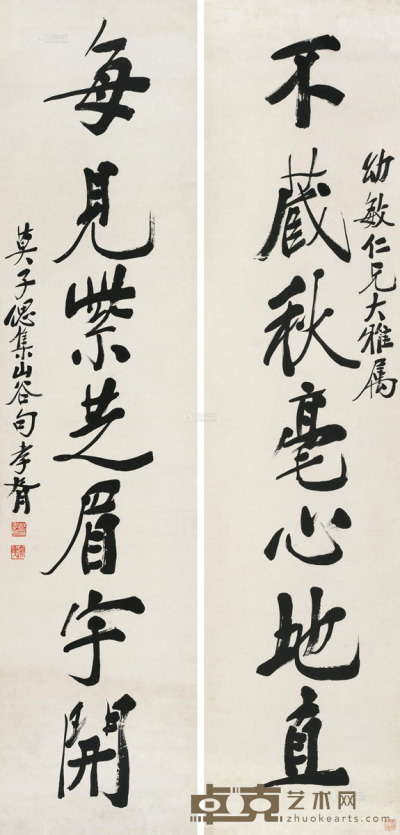 幼敏仁兄大雅属
不藏秋毫心地直
每見紫芝眉宇開
莫子偲集山谷句孝胥
卓克艺术网
www.zhuokearts.com